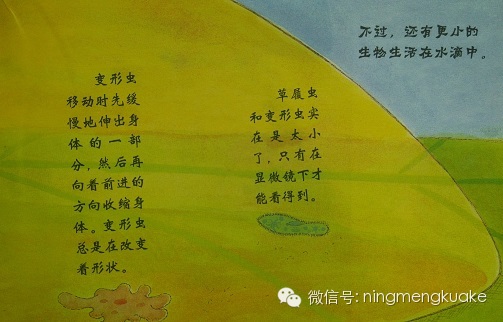 不过，还有更小的
生物生活在水滴中。
变形虫
移动时先缓
慢地伸出身
体的一部
分，然后再
向着前进的
方向收缩身
体。变形虫
总是在改变
着形状。
草履虫
和变形虫实
在是太小
了，只有在
显微镜下才
能看得到。
微信号: ningmengkuake